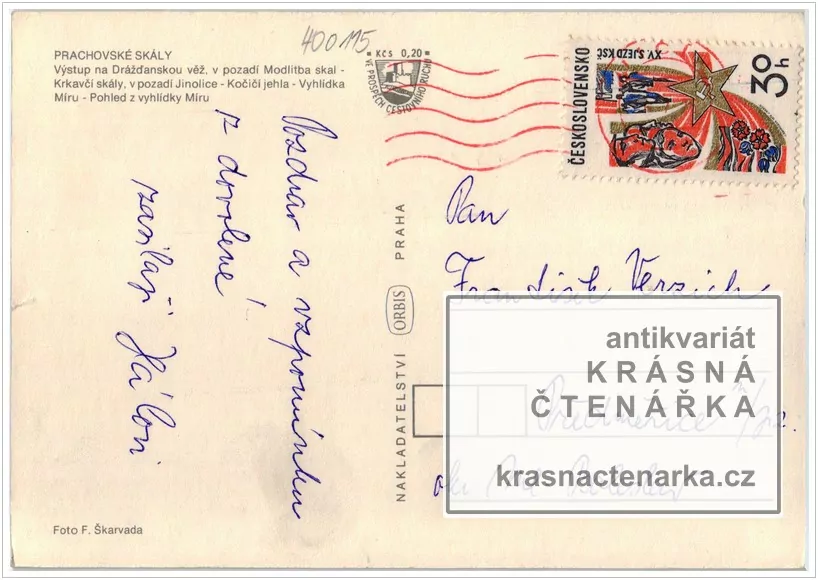 400115
PRACHOVSKÉ SKÁLY
Výstup na Drážďanskou věž, v pozadí Modlitba skal -
Krkavčí skály, v pozadí Jinolice - Kočičí jehla - Vyhlídka
Míru - Pohled z vyhlídky Míru
Pozdrav a vzpomínku
z dovolené
zasílají
Foto F. Škarvada
NAKLADATELSTVÍ ORBIS PRAHA
Kčs 0,20
VE PROSPĚCH CESTOVNÍHO RUCHU
ČESKOSLOVENSKO
XV. SJEZD KSČ
30h
Pan
František Verzich
antikvariát
KRÁSNÁ
ČTENÁŘKA
krasnactenarka.cz